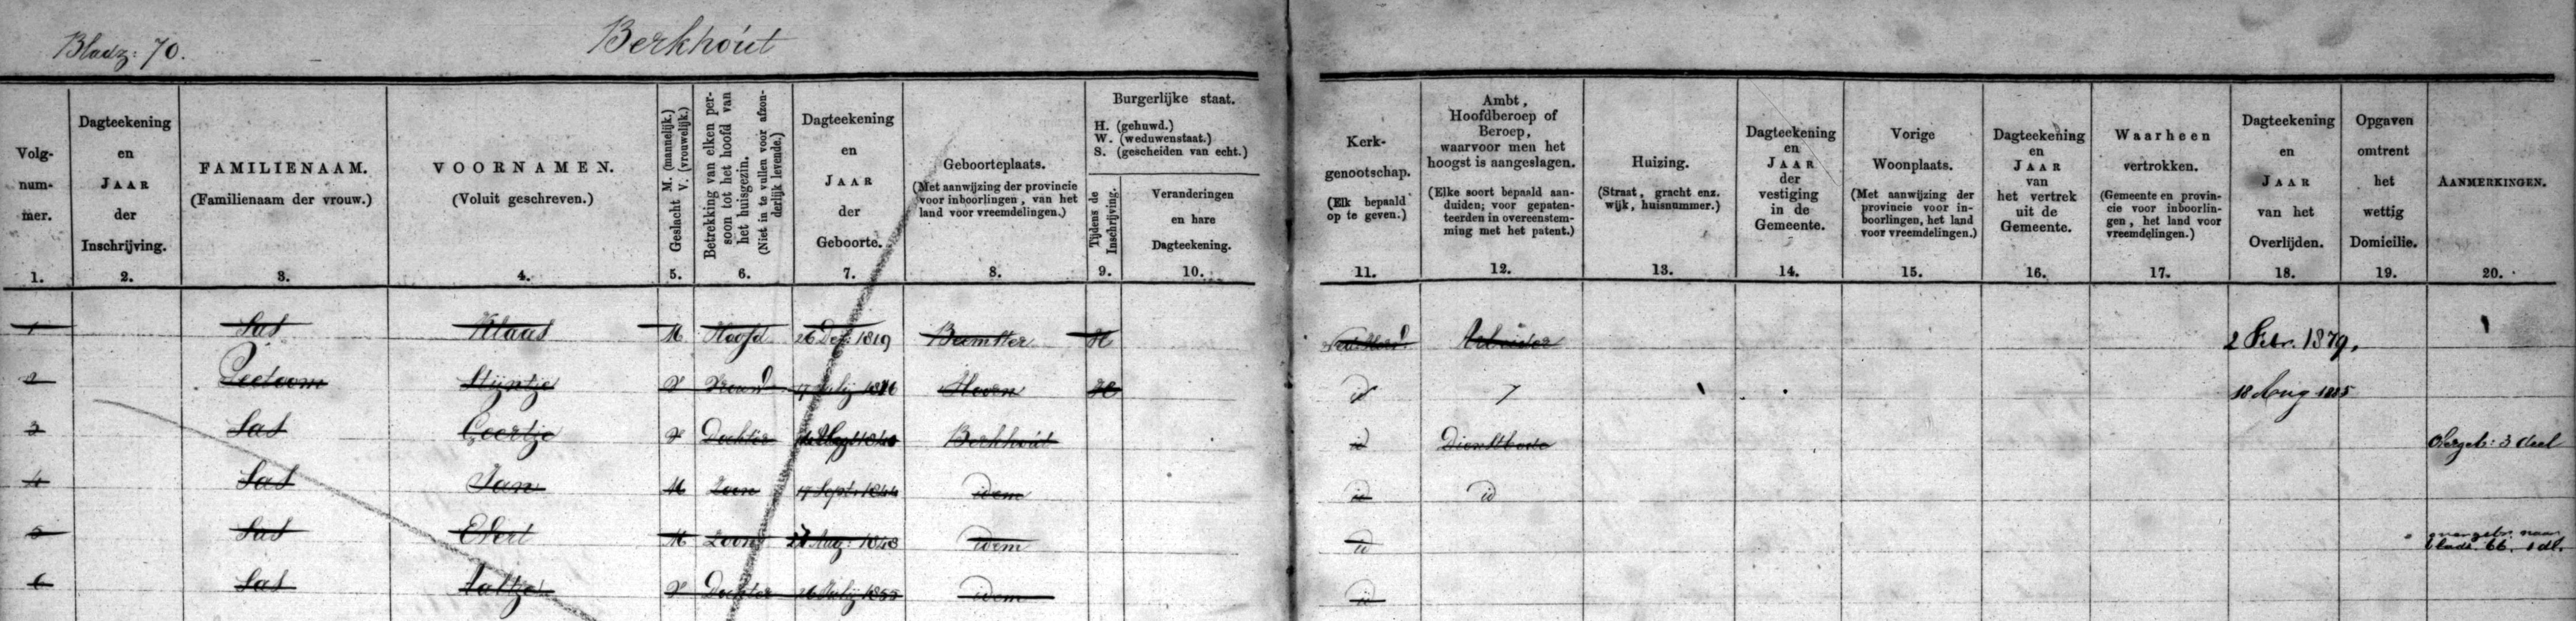 Bladz: 70.
Berkhout
Volg-
num-
mer.
1.
Dagteekening
en
JAAR
der
Inschrijving.
2.
FAMILIENAAM.
(Familienaam der vrouw.)
3.
VOORNAMEN.
(Voluit geschreven.)
4.
Geslacht M. (mannelijk.)
V. (vrouwelijk.)
5.
Betrekking van elken per-
soon tot het hoofd van
het huisgezin.
(Niet in te vullen voor afzon-
derlijk levende.)
6.
Dagteekening
en
JAAR
der
Geboorte.
7.
Geboorteplaats.
(Met aanwijzing der provincie
voor inboorlingen, van het
land voor vreemdelingen.)
8.
Burgerlijke staat.
H. (gehuwd.)
W. (weduwenstaat.)
S. (gescheiden van echt.)
Tijdens de
Inschrijving.
9.
Veranderingen
en hare
Dagteekening.
10.
Kerk-
genootschap.
(Elk bepaald
op te geven.)
11.
Ambt,
Hoofdberoep of
Beroep,
waarvoor men het
hoogst is aangeslagen.
(Elke soort bepaald aan-
duiden; voor gepaten-
teerden in overeenstem-
ming met het patent.)
12.
Huizing.
(Straat, gracht enz.
wijk, huisnummer.)
13.
Dagteekening
en
JAAR
der
vestiging
in de
Gemeente.
14.
Vorige
Woonplaats.
(Met aanwijzing der
provincie voor in-
boorlingen, het land
voor vreemdelingen.)
15.
Dagteekening
en
JAAR
van
het vertrek
uit de
Gemeente.
16.
Waarheen
vertrokken.
(Gemeente en provin-
cie voor inboorlin-
gen, het land voor
vreemdelingen.)
17.
Dagteekening
en
JAAR
van het
Overlijden.
18.
Opgaven
omtrent
het
wettig
Domicilie.
19.
AANMERKINGEN.
20.
1 Sas Klaas M Hoofd 26 Dec: 1819 Beemster H Ned: Herv Arbeider 2 Febr. 1879.
2 Peetoom Stijntje V Vrouw 17 Julij Hoorn H id 18 Aug 1885
3 Sas Geertje V Dochter Berkhout id Dienstbode Overgeb: 3 deel
4 Sas Jan M Zoon 17 Sept. 1844 idem id id
5 Sas Evert M Zoon Aug: 1848 idem id overgebr. naar
bladz. 66. 1 dl.
6 Sas V Dochter 26 Julij 1855 idem id